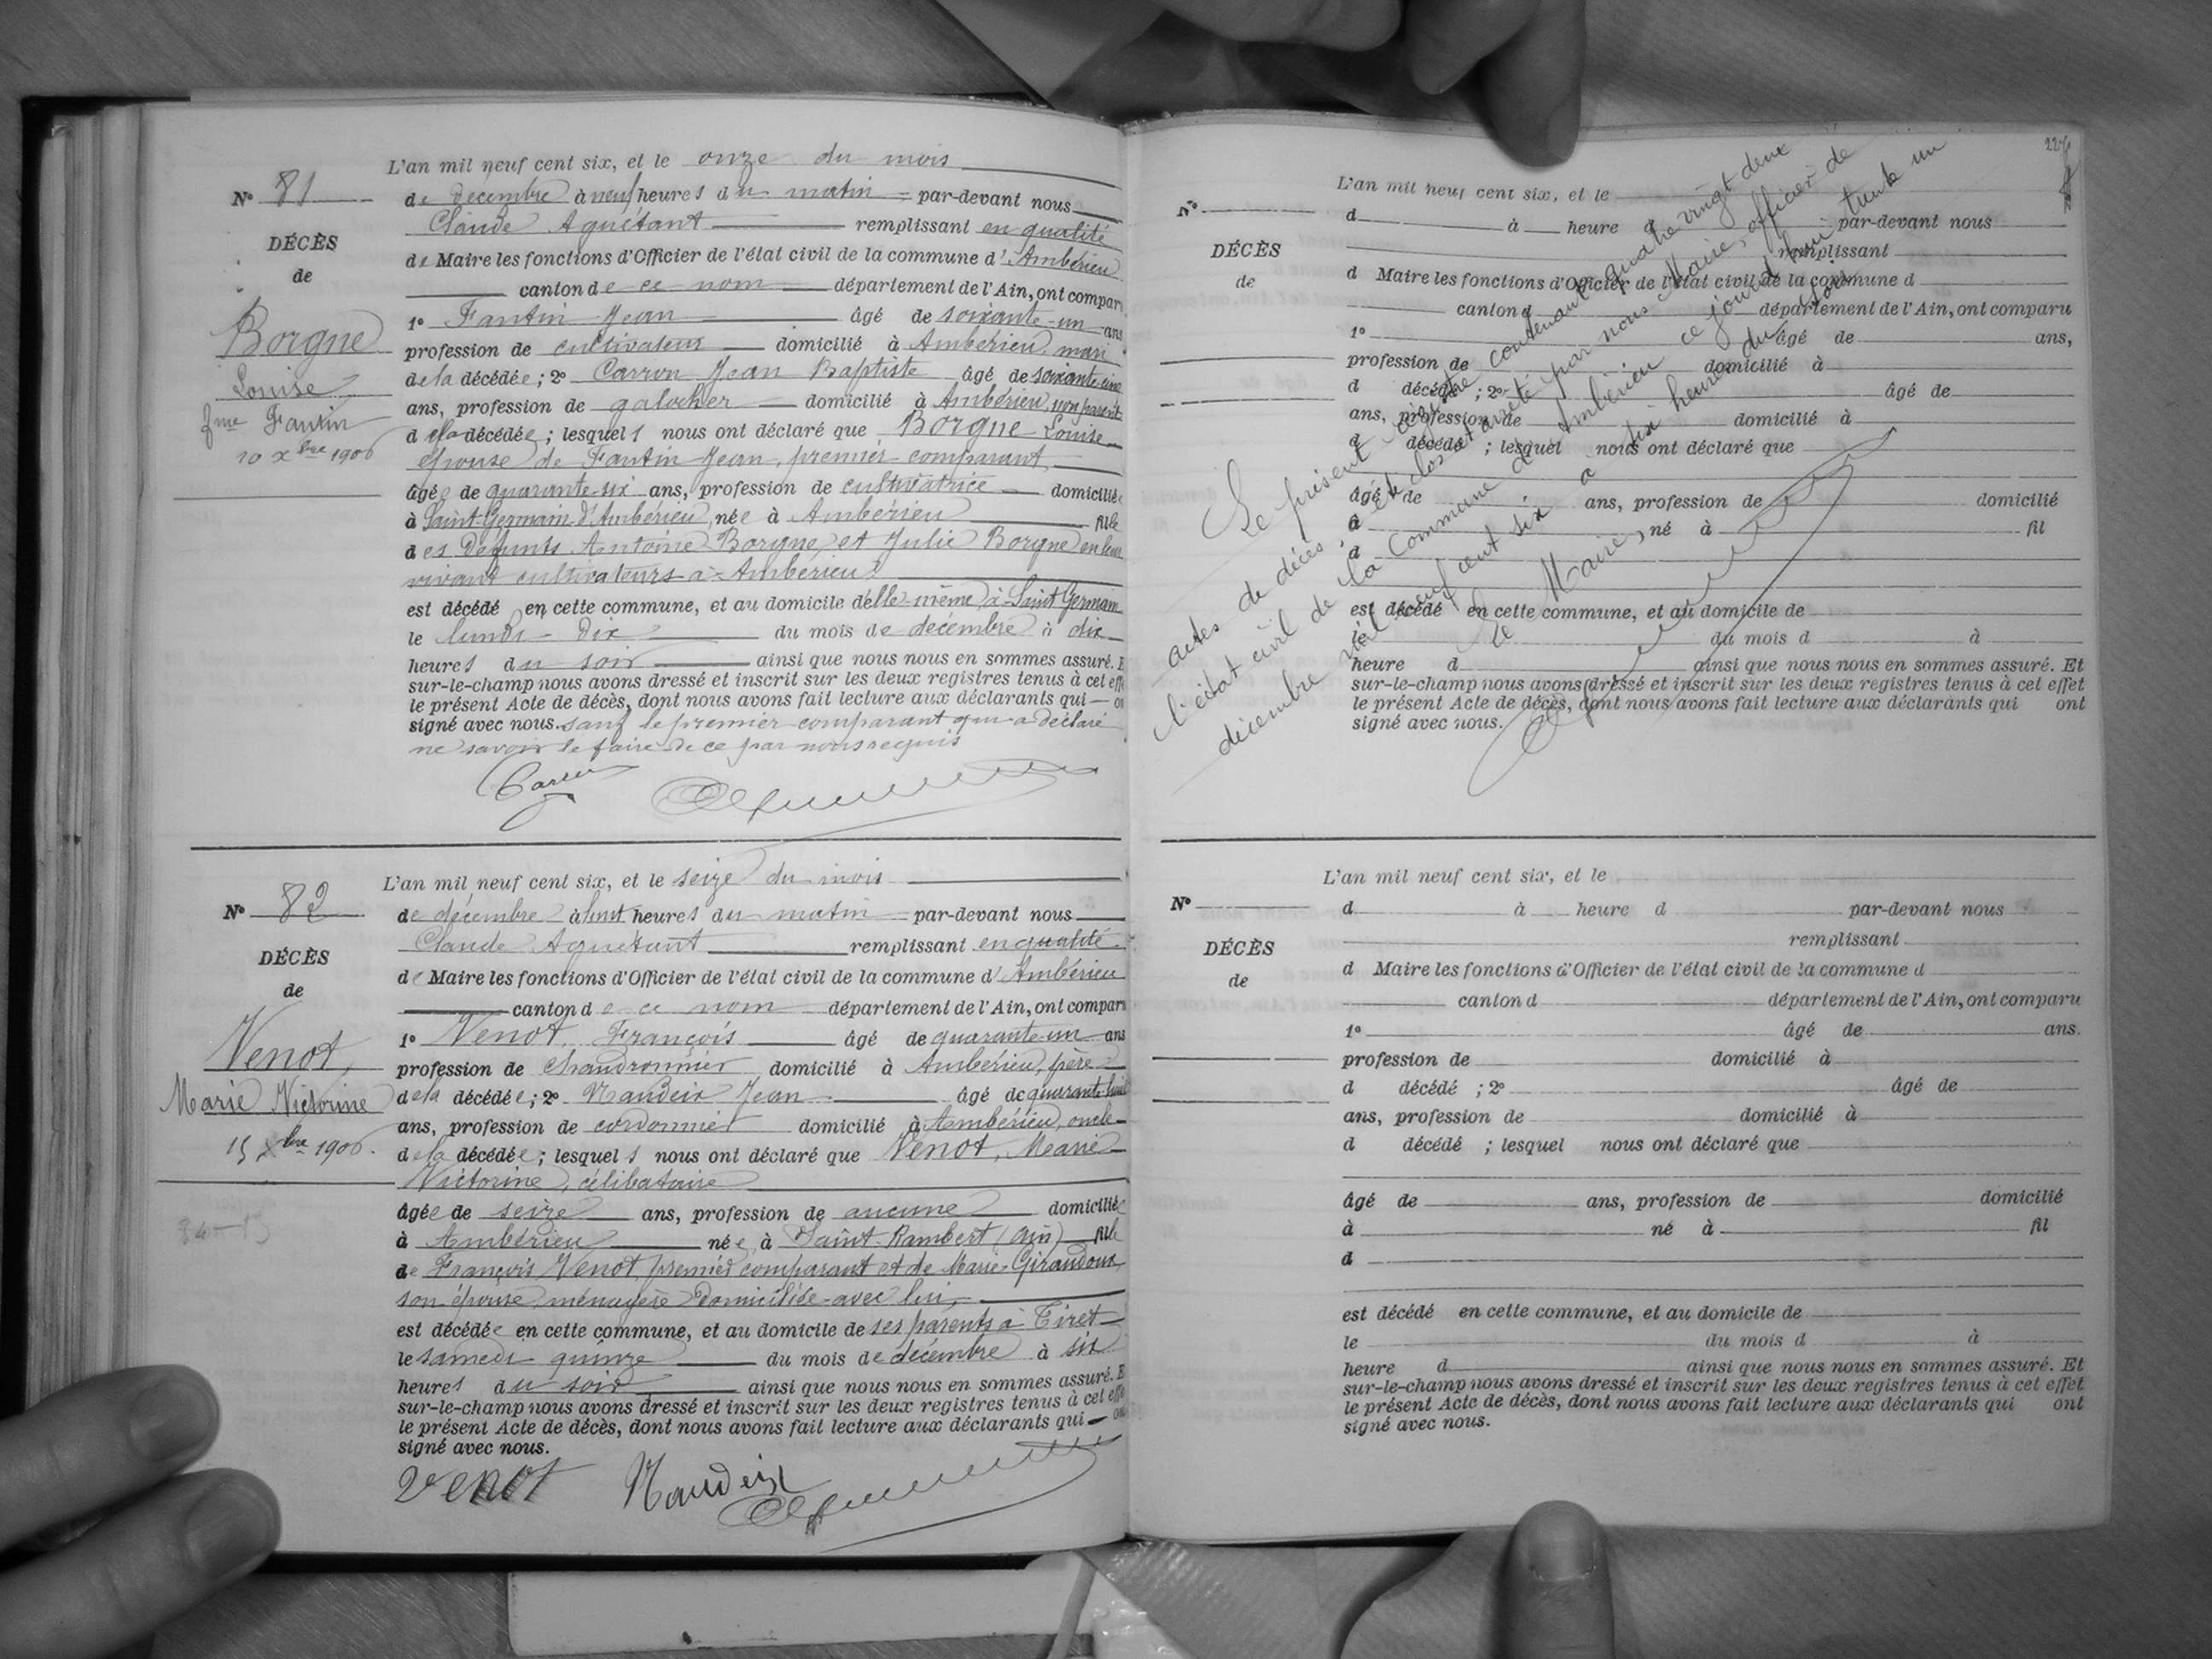 L'an mil neuf cent six, et le onze du mois
N° 81
de décembre à neuf heures du matin par-devant nous
Claude Aguétant remplissant en qualité
DÉCÈS
de
de Maire les fonctions d'Officier de l'état civil de la commune d'Ambérieu
canton de ce nom département de l'Ain, ont compar
Borgne
Louise
fme Fantin
10 xbre 1906
1° Fantin Jean âgé de soixante-un ans
profession de cultivateur domicilié à Ambérieu, mari
de la décédée; 2° Carron Jean Baptiste âgé de soixante-cinq
ans, profession de galocher domicilié à Ambérieu, non parent
de la décédée; lesquels nous ont déclaré que Borgne Louise
épouse de Fantin Jean, premier comparant,
âgée de quarante-six ans, profession de cultivatrice domiciliée
à Saint-Germain-d'Ambérieu, née à Ambérieu fille
des défunts Antoine Borgne et Julie Borgne en leur
vivant cultivateurs à Ambérieu
est décédé en cette commune, et au domicile d'elle-même à Saint Germain
le lundi dix du mois de décembre à dix
heures du soir ainsi que nous nous en sommes assuré. E
sur-le-champ nous avons dressé et inscrit sur les deux registres tenus à cet eff
le présent Acte de décès, dont nous avons fait lecture aux déclarants qui on
signé avec nous. sauf le premier comparant qui a déclaré
ne savoir le faire de ce par nous requis
Carron
L'an mil neuf cent six, et le seize du mois
N° 82
de décembre à huit heures du matin par-devant nous
Claude Aguétant remplissant en qualité
DÉCÈS
de
de Maire les fonctions d'Officier de l'état civil de la commune d'Ambérieu
canton de ce nom département de l'Ain, ont compar
Venot,
Marie Victorine
15 xbre 1906.
1° Venot, François âgé de quarante-un ans
profession de chaudronnier domicilié à Ambérieu, père
de la décédée; 2° Naudeix Jean âgé de quarante-huit
ans, profession de cordonnier domicilié à Ambérieu, oncle
de la décédée; lesquels nous ont déclaré que Venot, Marie
Victorine, célibataire
âgée de seize ans, profession de aucune domiciliée
à Ambérieu née à Saint-Rambert (Ain) fille
de François Venot, premier comparant et de Marie Giraudoux,
son épouse, ménagère domiciliée avec lui,
est décédée en cette commune, et au domicile de ses parents à Tiret
le samedi quinze du mois de décembre à six
heures du soir ainsi que nous nous en sommes assuré. E
sur-le-champ nous avons dressé et inscrit sur les deux registres tenus à cet effe
le présent Acte de décès, dont nous avons fait lecture aux déclarants qui on
signé avec nous.
Venot Naudeix
Le présent registre contenant quatre vingt deux
actes de décès, a été clos et arrêté par nous Maire, officier de
l'état civil de la commune d'Ambérieu ce jourd'hui trente un
décembre mil neuf cent six à six heures du soir
Le Maire,
L'an mil neuf cent six, et le
N°
d à heure d par-devant nous
remplissant
DÉCÈS
de
d Maire les fonctions d'Officier de l'état civil de la commune d
canton d département de l'Ain, ont comparu
1° âgé de ans,
profession de domicilié à
d décédé ; 2° âgé de
ans, profession de domicilié à
d décédé ; lesquel nous ont déclaré que
âgé de ans, profession de domicilié
à né à fil
d
est décédé en cette commune, et au domicile de
le du mois d à
heure d ainsi que nous nous en sommes assuré. Et
sur-le-champ nous avons dressé et inscrit sur les deux registres tenus à cet effet
le présent Acte de décès, dont nous avons fait lecture aux déclarants qui ont
signé avec nous.
L'an mil neuf cent six, et le
N°
d à heure d par-devant nous
remplissant
DÉCÈS
de
d Maire les fonctions d'Officier de l'état civil de la commune d
canton d département de l'Ain, ont comparu
1° âgé de ans.
profession de domicilié à
d décédé ; 2° âgé de
ans, profession de domicilié à
d décédé ; lesquel nous ont déclaré que
âgé de ans, profession de domicilié
à né à fil
d
est décédé en cette commune, et au domicile de
le du mois d à
heure d ainsi que nous nous en sommes assuré. Et
sur-le-champ nous avons dressé et inscrit sur les deux registres tenus à cet effet
le présent Acte de décès, dont nous avons fait lecture aux déclarants qui ont
signé avec nous.